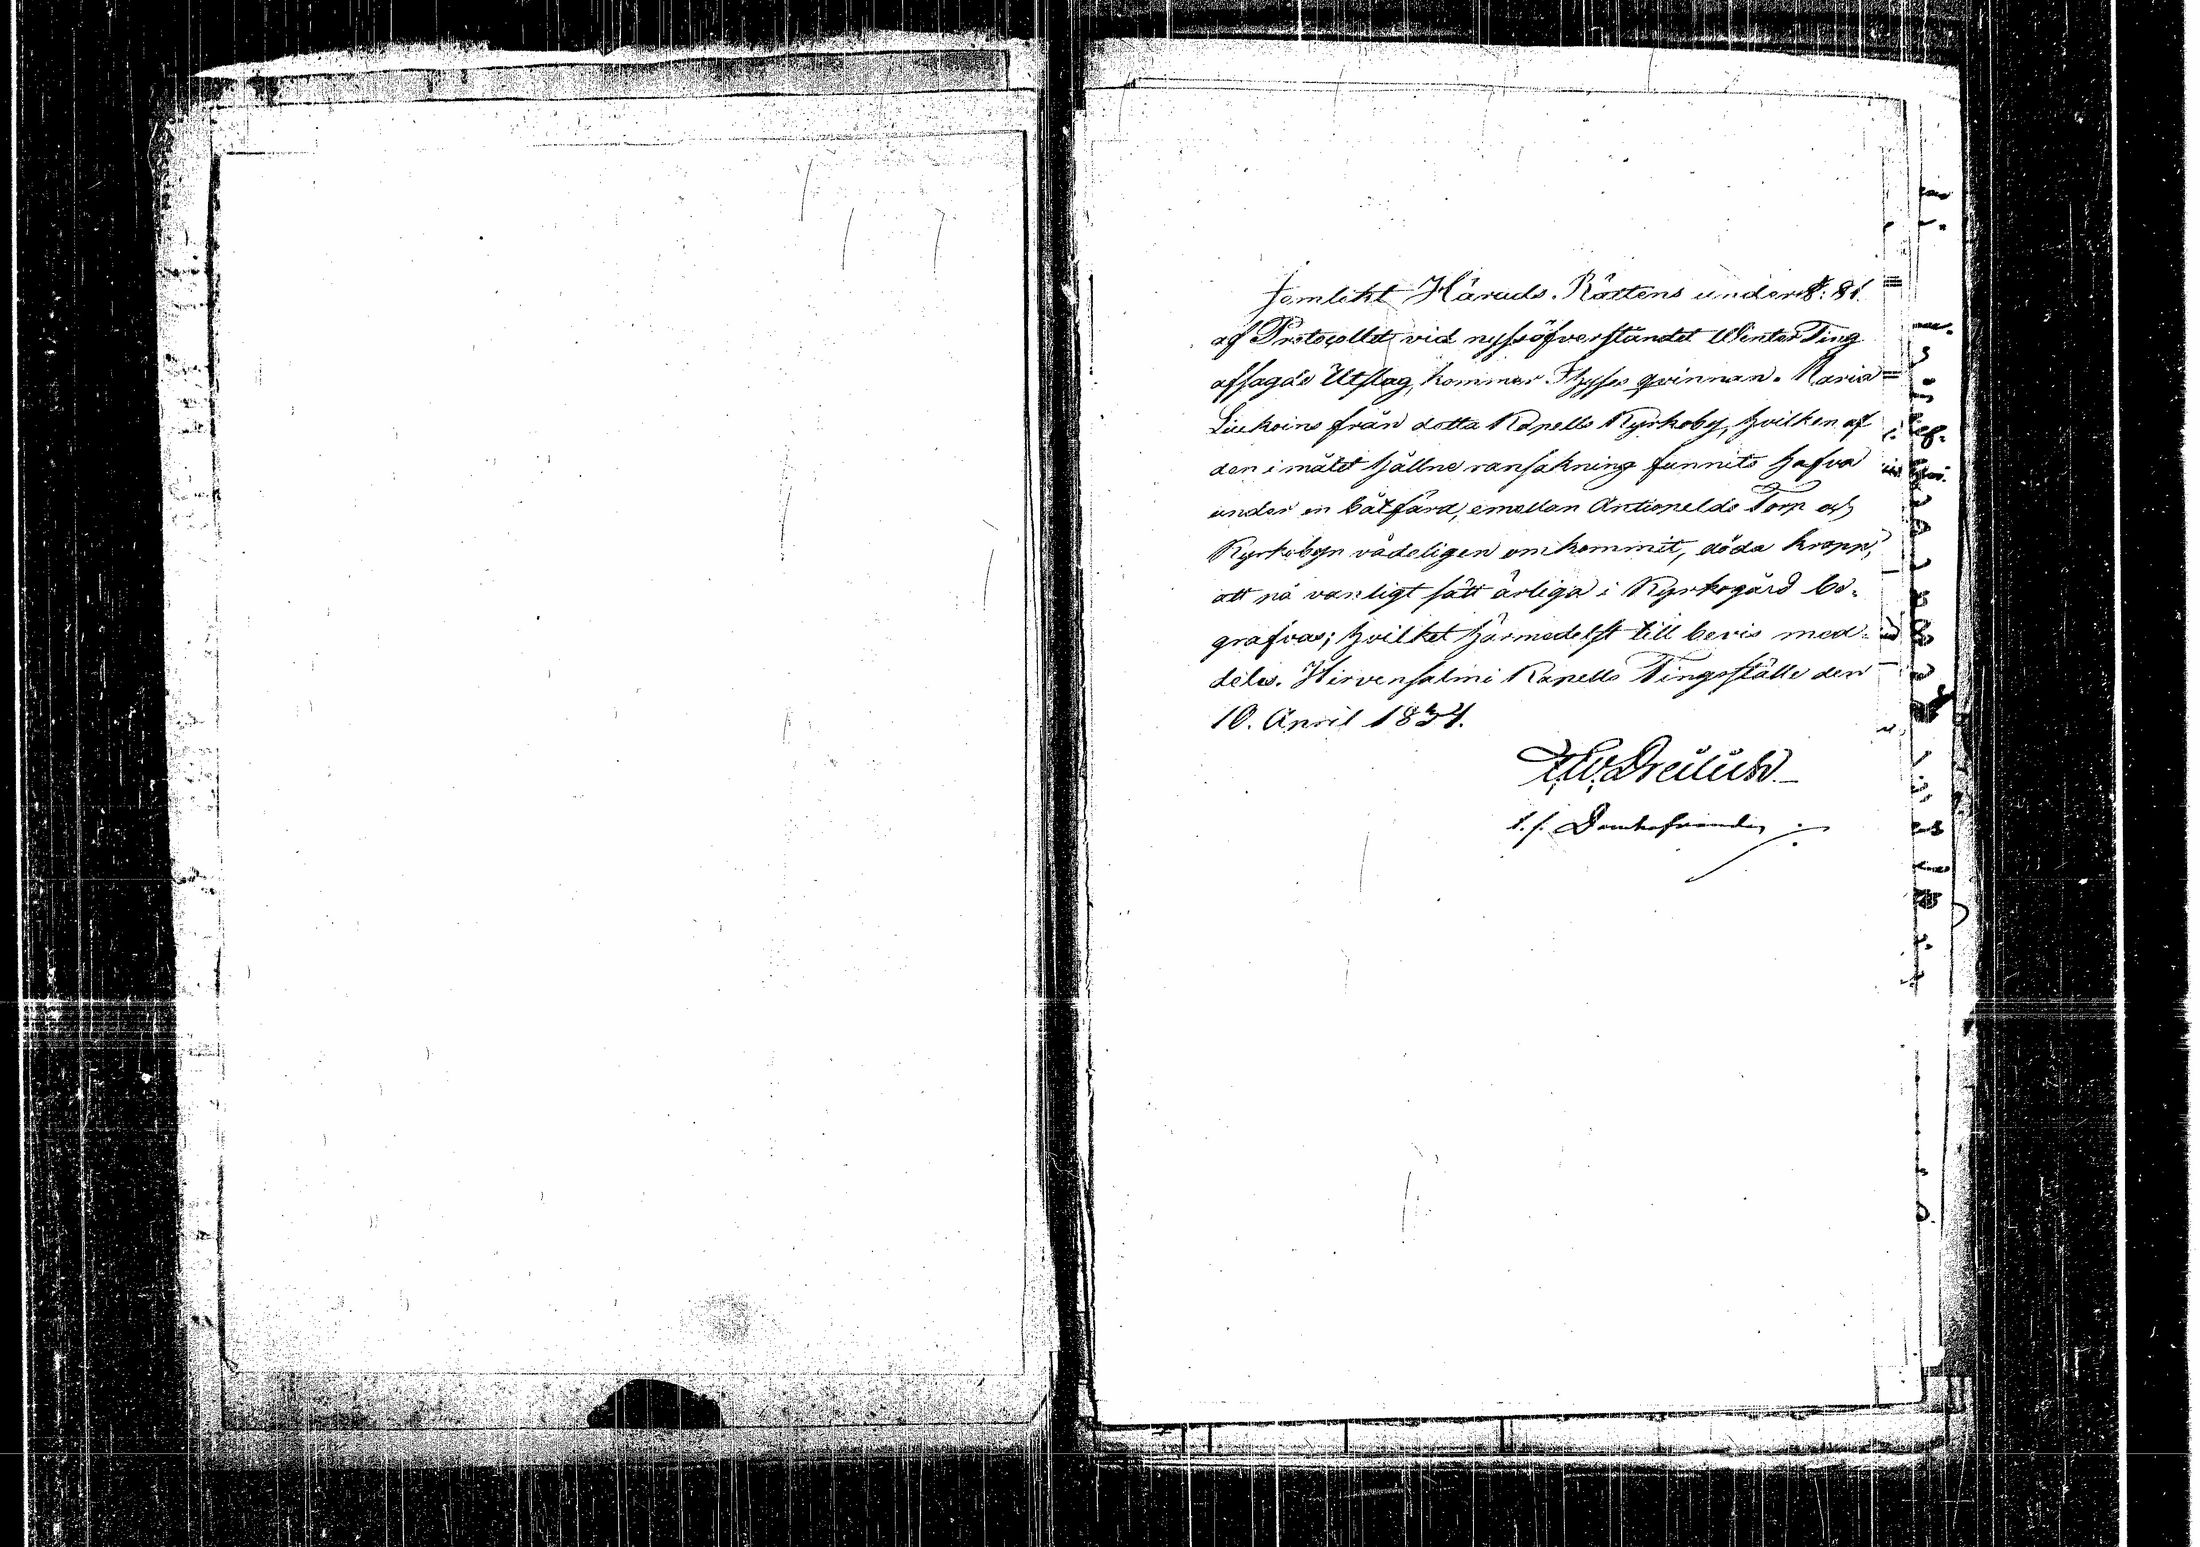 Jemlikt Härads Rättens under §: 81.
af Protocollet vid nyssöfverståndet Winter Ting
afsagde Utslag, kommer Hyses qvinnan Maria
Liukoins från detta Kapells Kyrkoby, hvilken af
den i målet hållne ransakning funnits hafva
under en båtfärd, emellan Anttonelds Torp och
Kyrkobyn vådeligen omkommit, döda kropp,
att på vanligt sätt ärliga i Kyrkogård be-
grafvas; hvilket härmedelst till bevis med-
delas. Hirvensalmi Kapells Tingsställe den
10. April 1834.
t. f. Domhafvande